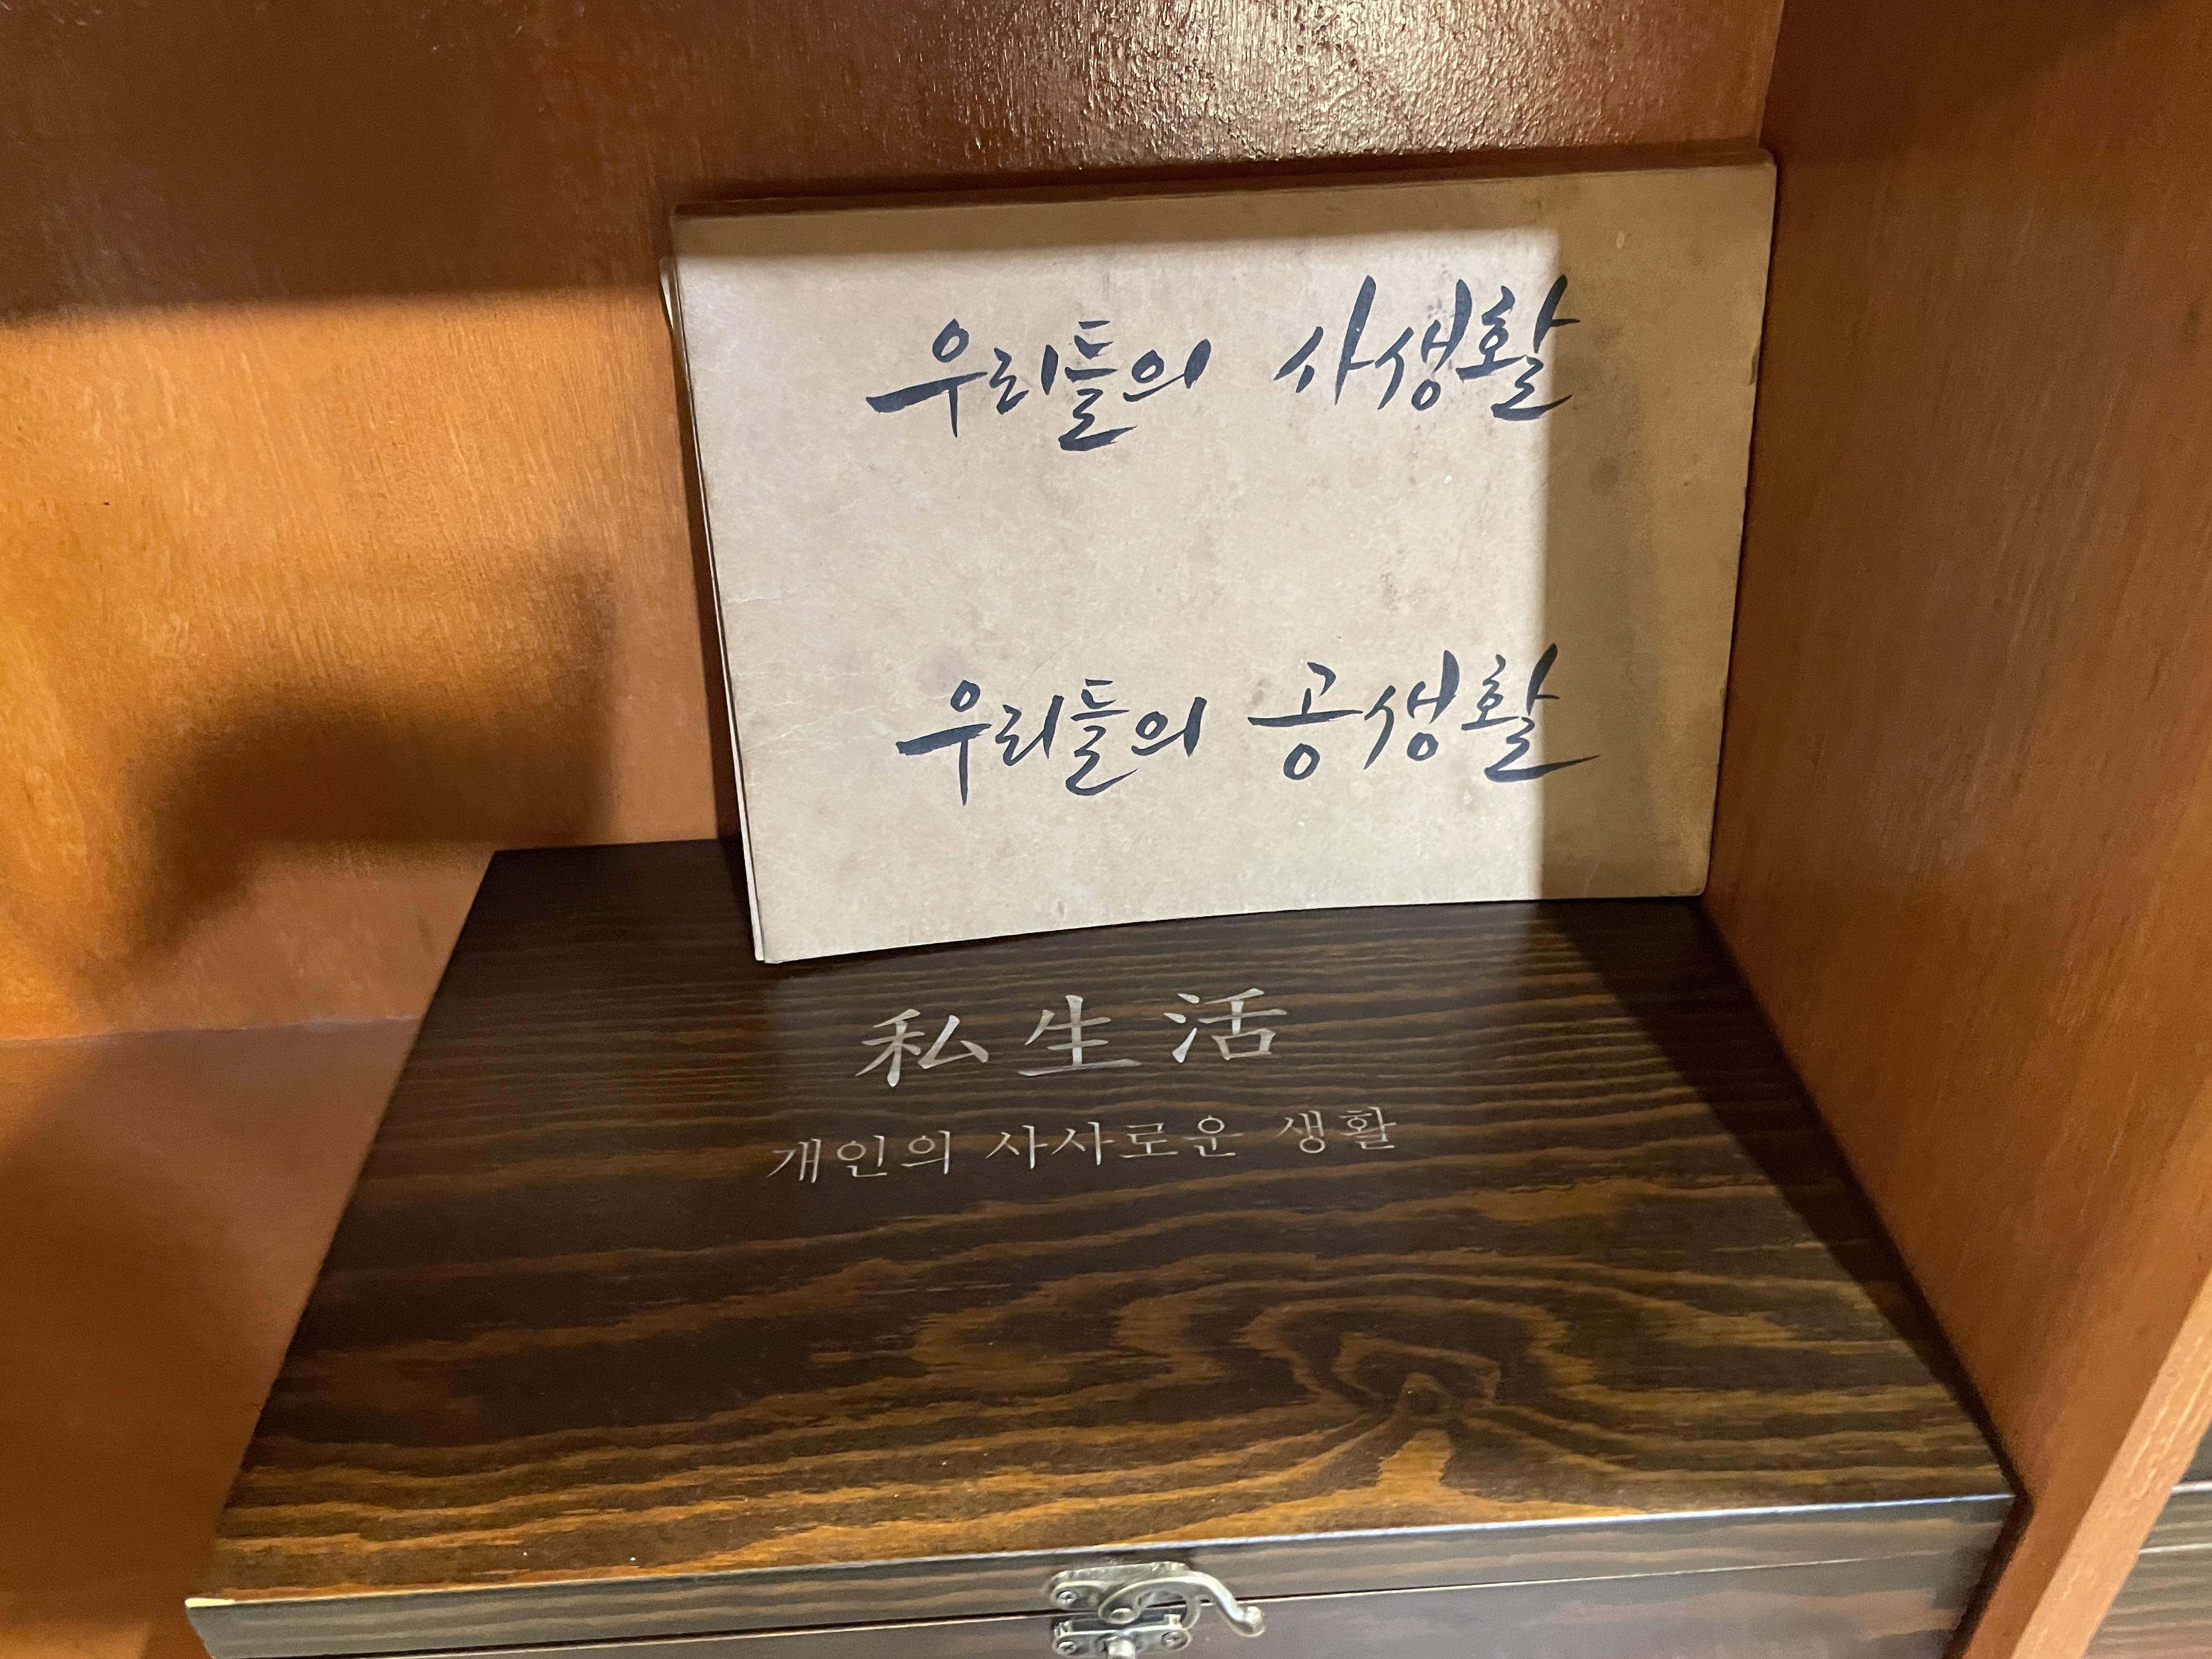 우리들의 사생활
우리들의 공생활
私生活
개인의 사사로운 생활